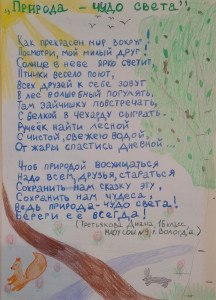 „Природа – чудо света",
Как прекрасен мир вокруг!
Посмотри, мой милый друг!
Солнце в небе ярко светит,
Птички весело поют,
Всех друзей к себе зовут
В лес волшебный погулять,
Там зайчишку повстречать,
С белкой в чехарду сыграть.
Ручеёк найти лесной
С чистой, свежею водой,
От жары спастись дневной...
Чтоб природой восхищаться
Надо всем, друзья, стараться
Сохранить нам сказку эту,
Сохранить нам чудеса,
Ведь природа – чудо света!
Береги её всегда!
(Третьякова Диана, 1Б класс,
МАОУ СОШ №1, г. Вологда)